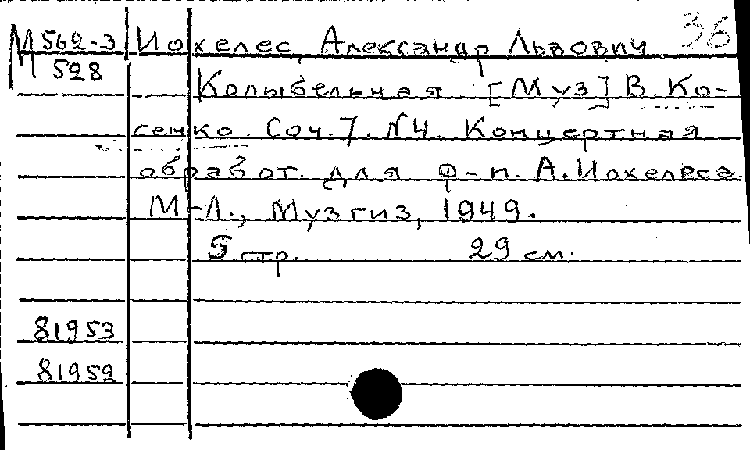 М 562-3 Иохелес, Александр Львович 36
528
Колыбельная [Муз] В. Ко-
сенко. Соч. 7. №4. Концертная
обработ. для ф-п. А. Иохелеса
М-Л., Музгиз, 1949.
5 стр. 29 см.
81953
81959